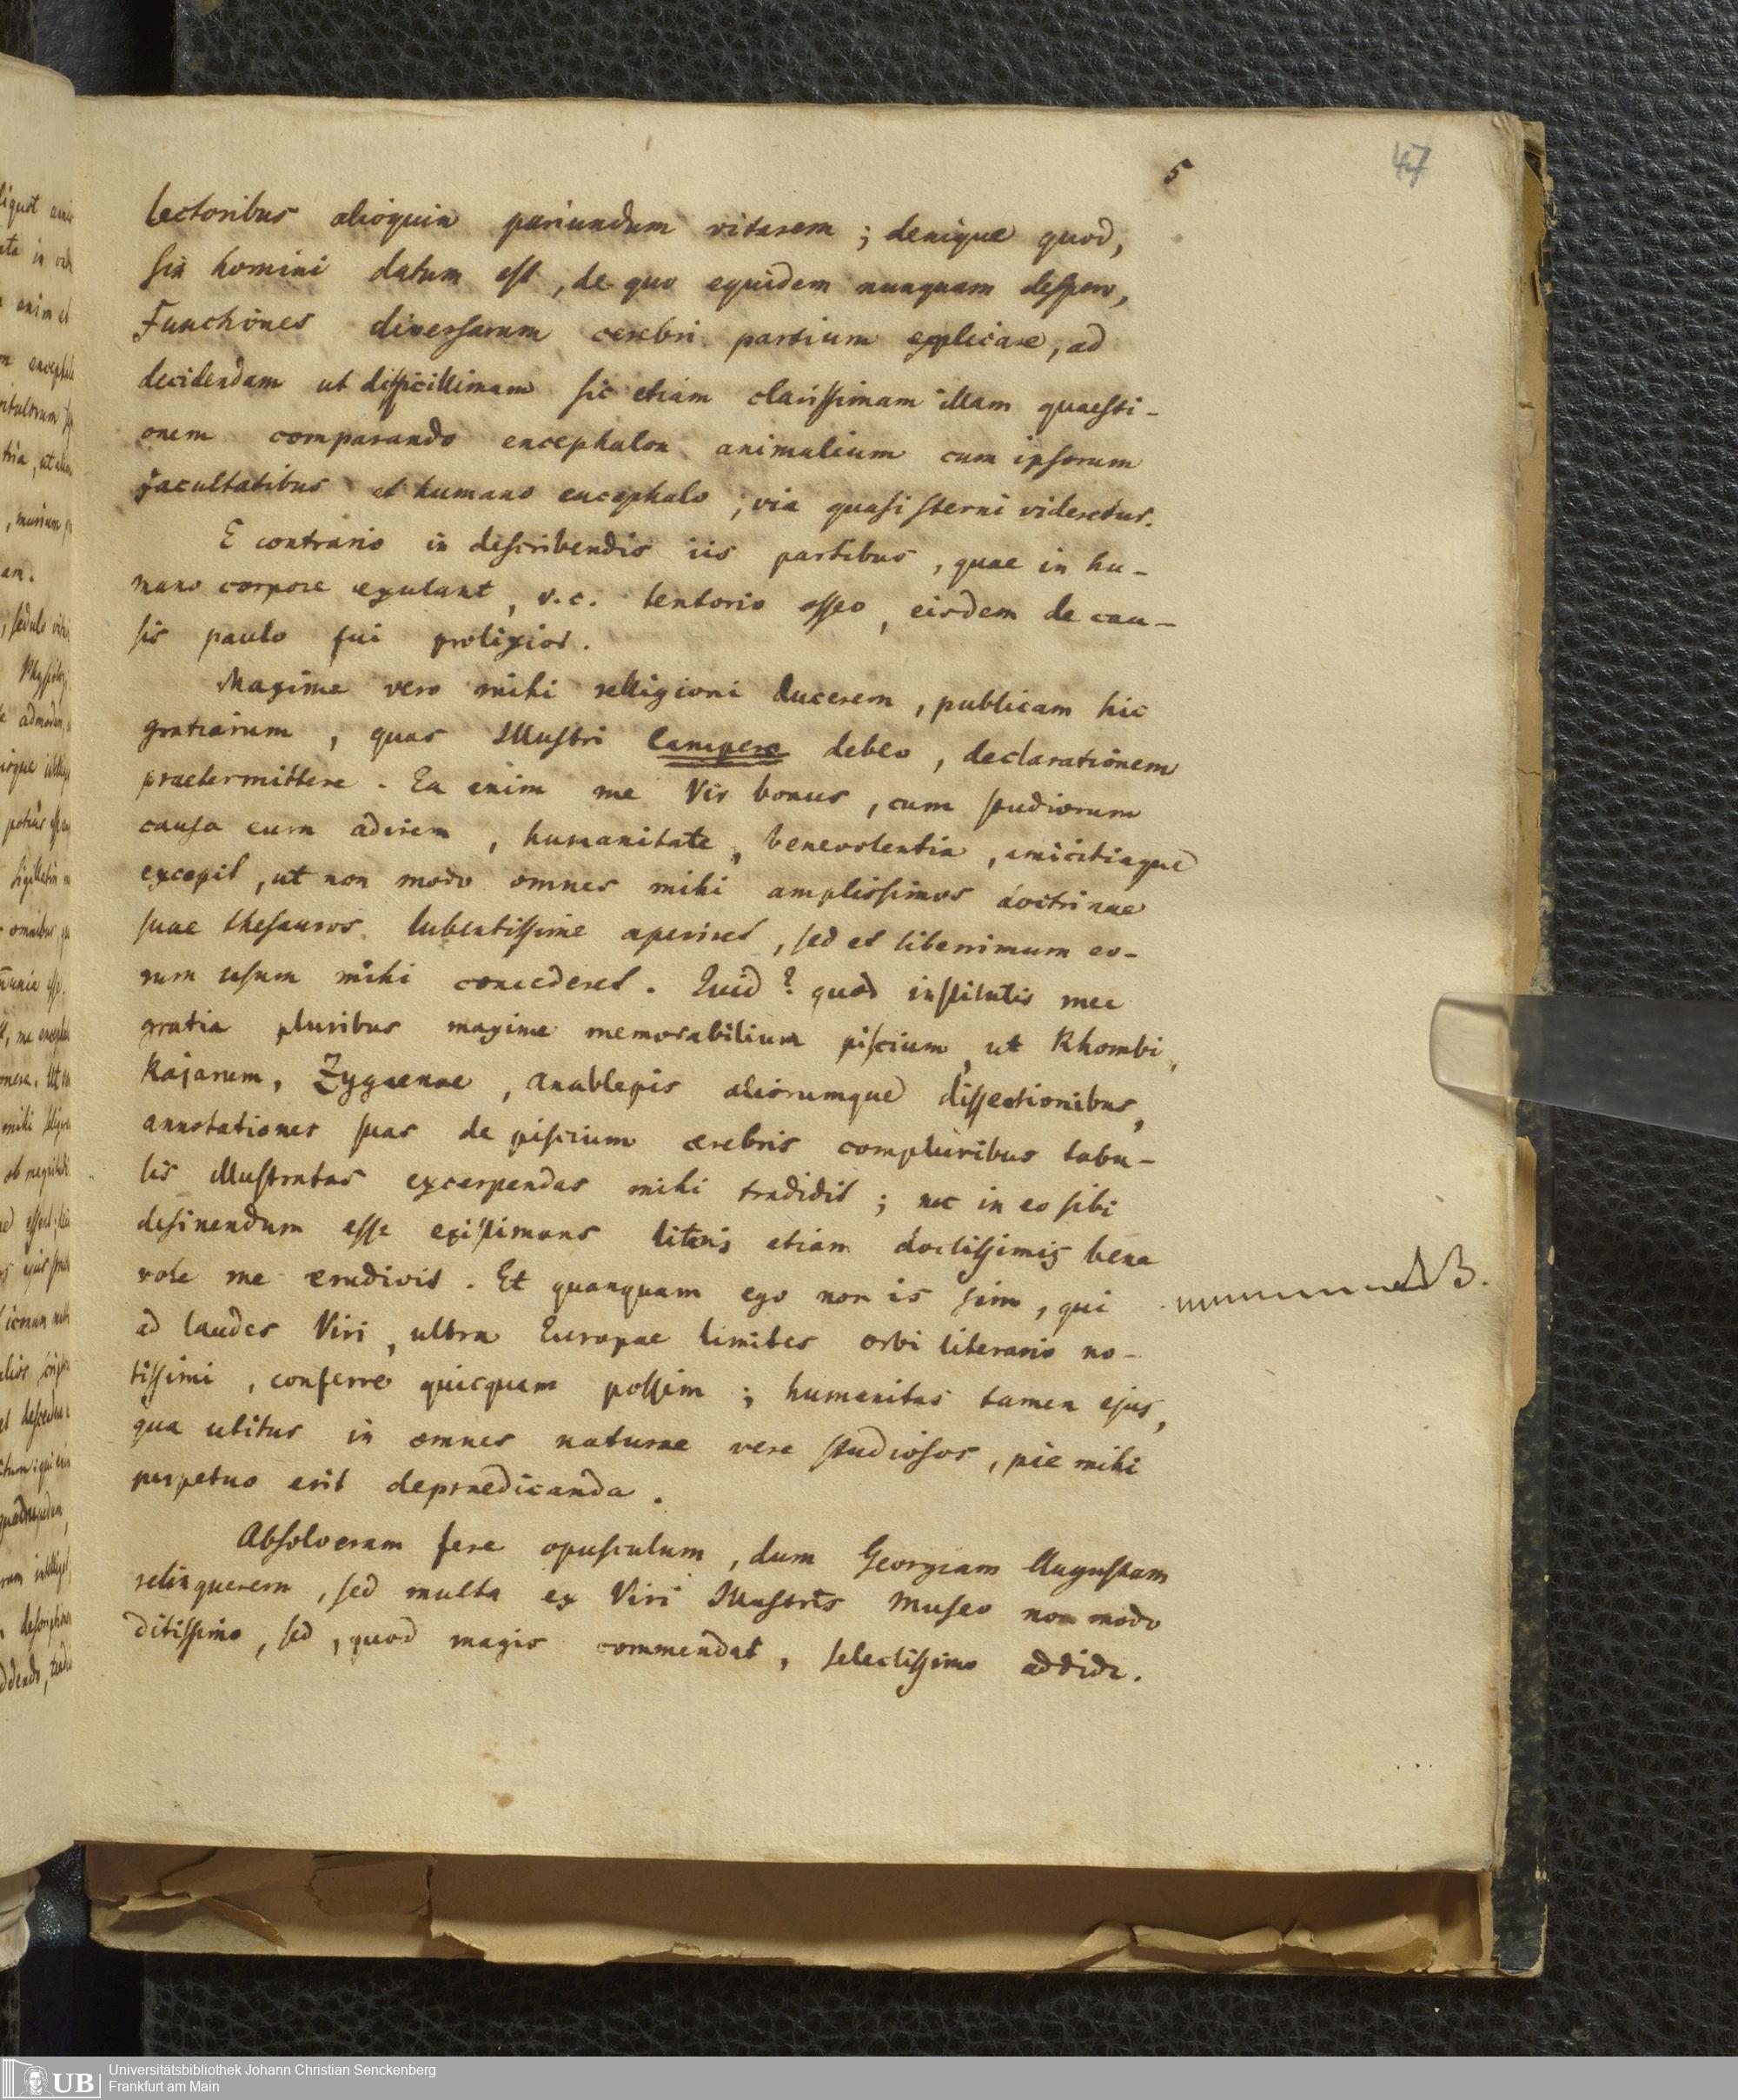 5
47
lectoribus alioquin pariundum vitarem ; denique quod,
sin homini datum est, de quo equidem nunquam despero,
Functiones diversarum cerebri partium explicare, ad
decidendam ut difficillimam sic etiam clarissimam illam quaesti-
onem comparando encephalon animalium cum ipsorum
facultatibus et humano encephalo, via quasi sterni videretur.
E contrario in describendis iis partibus, quae in hu-
mano corpore exulant, v.c. tentorio osseo, eisdem de cau-
sis paulo fui prolixior.
Maxime vero mihi relligioni ducerem, publicam hic
gratiarum, quas Illustri Campero debeo, declarationem
praetermittere. Ea enim me Vir bonus, cum studiorum
causa eum adirem, humanitate, benevolentia, amicitiaque
excepit, ut non modo omnes mihi amplissimos doctrinae
suae thesauros lubentissime aperiret, sed et liberrimum eo-
rum usum mihi concederet. Quid? quod institutis mea
gratia pluribus maxime memorabilium piscium, ut Rhombi,
Rajarum, Zygaenae, Anablepis aliorumque dissectionibus,
annotationes suas de piscium cerebris compluribus tabu-
lis illustratas excerpendas mihi tradidit; nec in eo sibi
desinendum esse existimans literis etiam doctissimis bene
vole me erudivit. Et quanquam ego non is sim, qui
NB.
ad laudes Viri, ultra Europae limites orbi literario no-
tissimi, conferre quicquam possim; humanitas tamen ejus,
qua utitur in omnes naturae vere studiosos, pie mihi
perpetuo erit depraedicanda.
Absolveram fere opusculum, dum Georgiam Augustam
relinquerem, sed multa ex Viri Illustris Museo non modo
ditissimo, sed, quod magis commendat, selectissimo addidi.
UB
Universitätsbibliothek Johann Christian Senckenberg
Frankfurt am Main